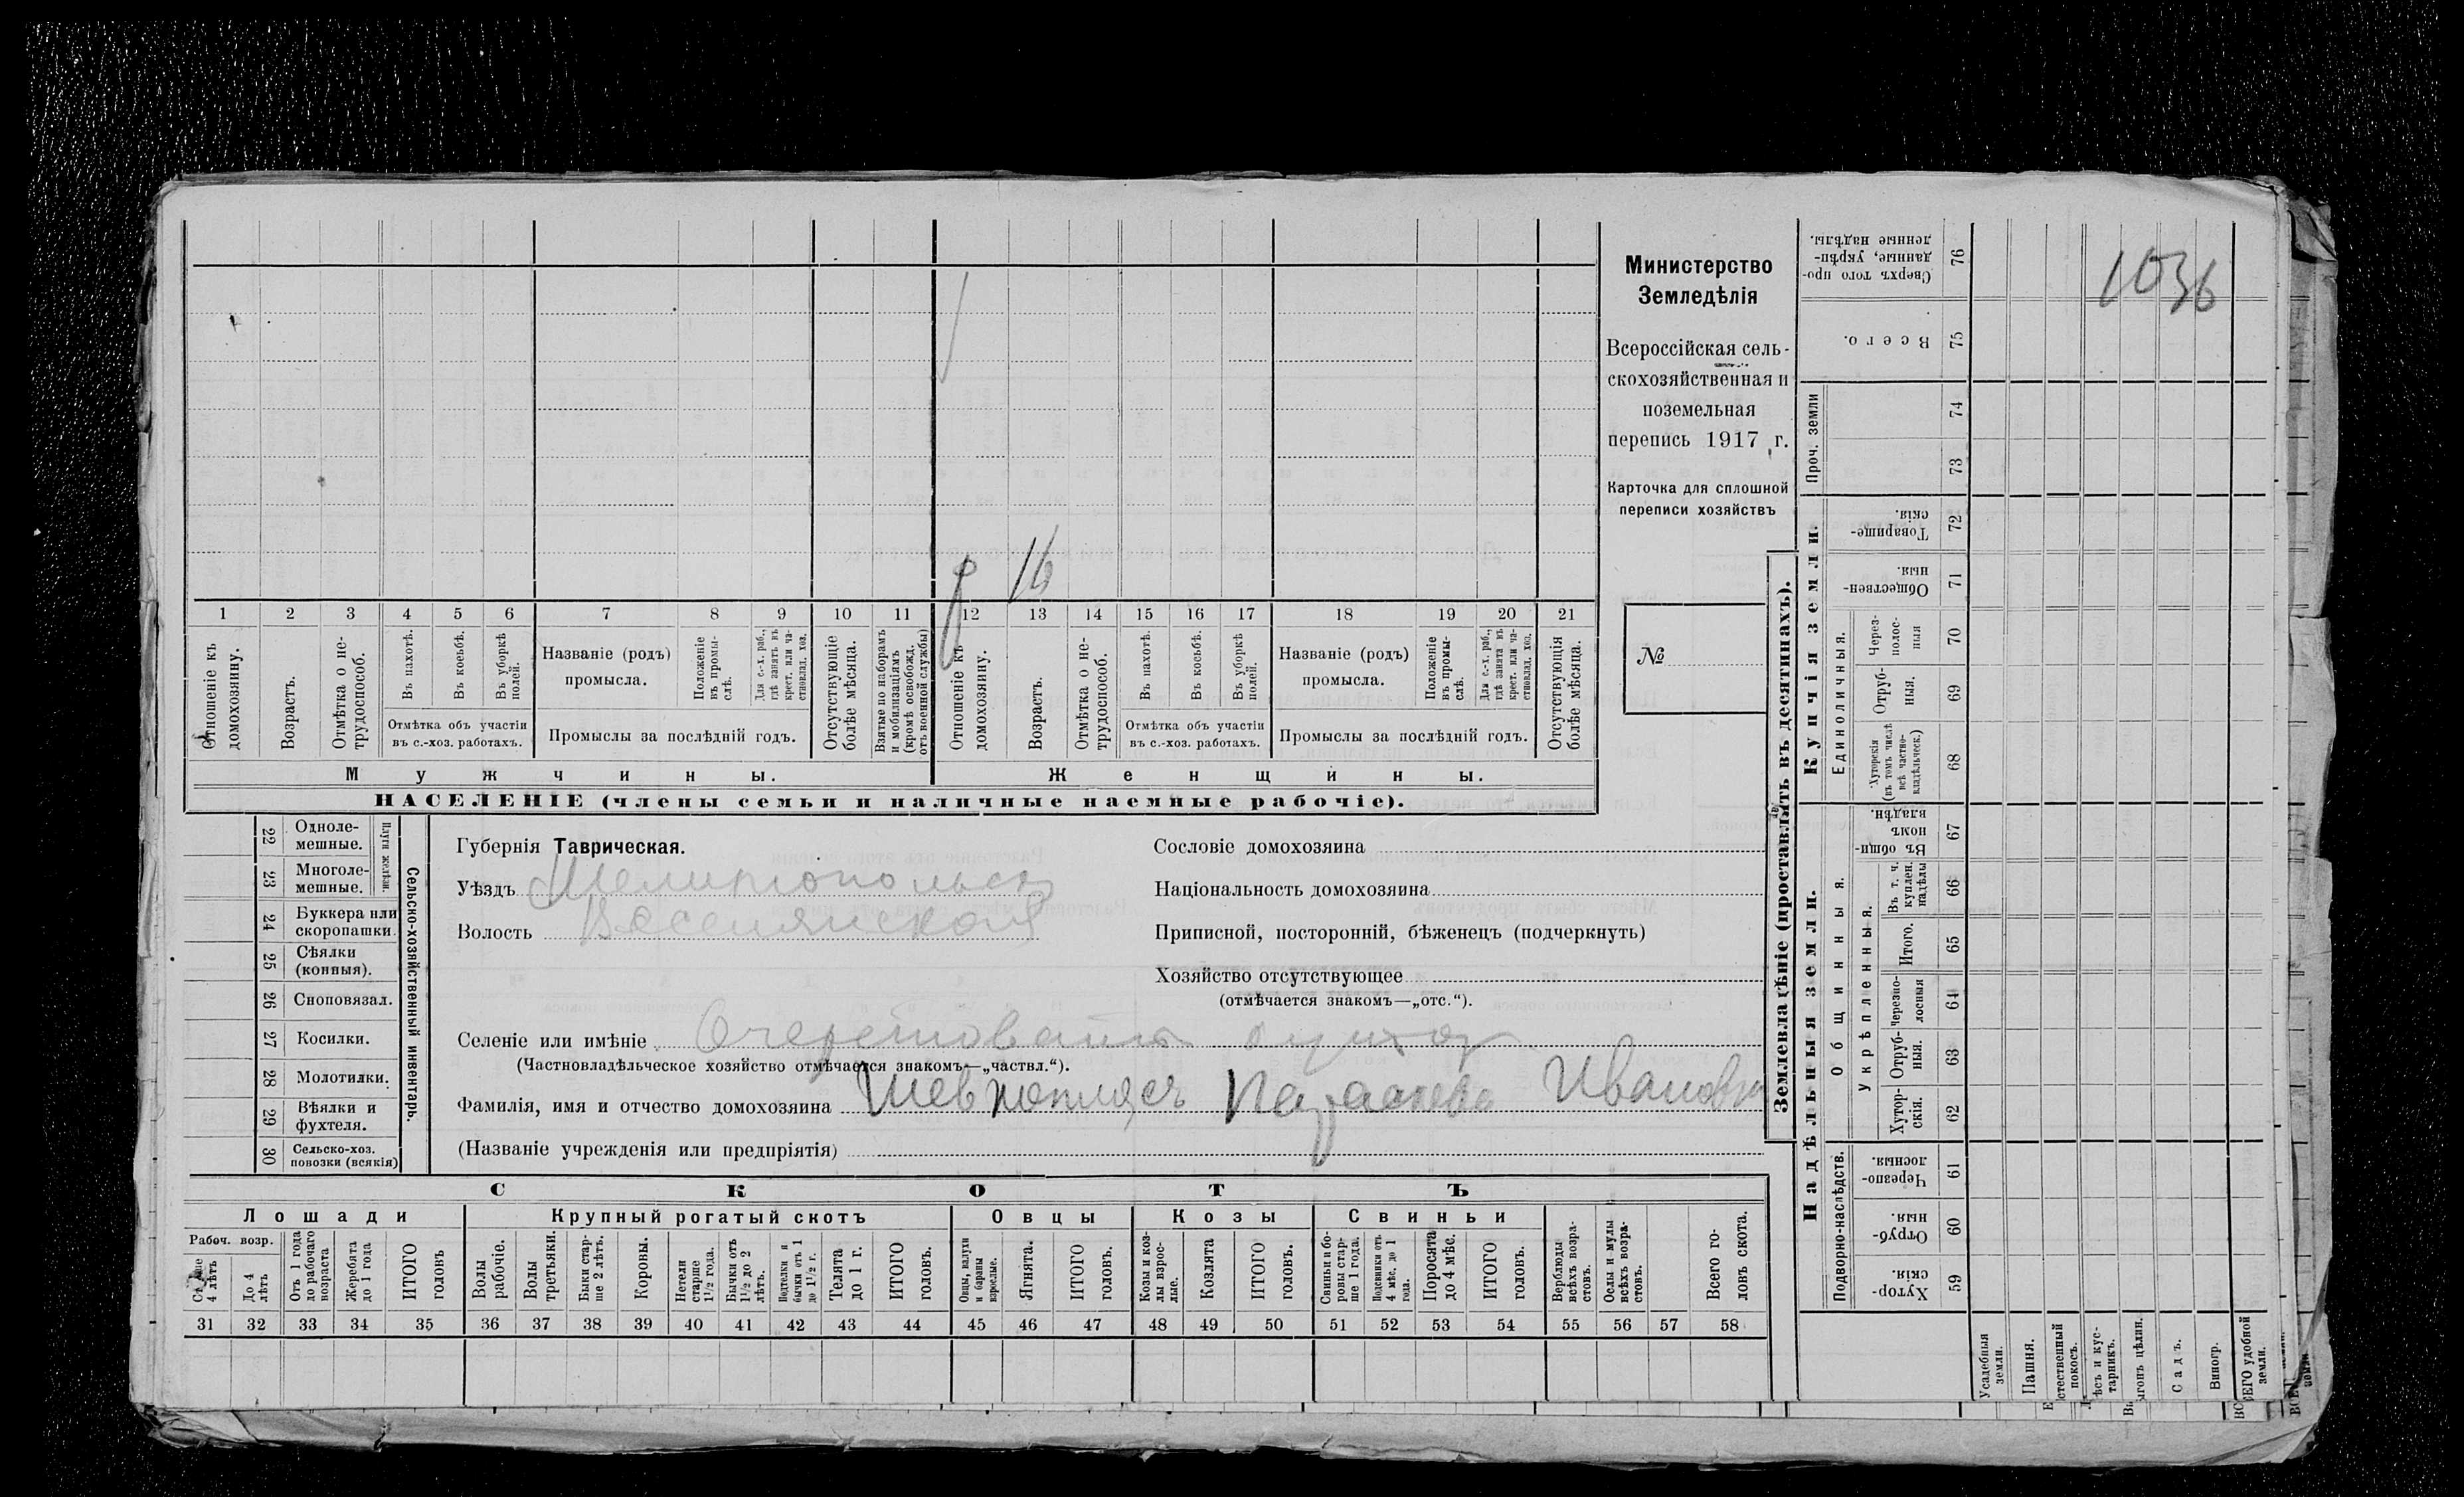 1036
Министерство
Земледѣлія
Всероссійская сель-
скохозяйственная и
поземельная
перепись 1917 г.
Карточка для сплошной
переписи хозяйствъ
№
16
1 2 3 4 5 6 7 8 9 10 11 12 13 14 15 16 17 18 19 20 21
Отношеніе къ домохозяину.
Возрастъ.
Отмѣтка о не-трудоспособ.
Въ пахотѣ.
Въ косьбѣ.
Въ уборкѣ полей.
Отмѣтка объ участіи
въ с.-хоз. работахъ.
Названіе (родъ)
промысла.
Положеніе въ промы-слѣ.
Для с.-х. раб., гдѣ занятъ въ крест. или ча-стновлад. хоз.
Промыслы за послѣдній годъ.
Отсутствующіе болѣе мѣсяца.
Взятые по наборамъ и мобилизаціямъ (кромѣ освобожд. отъ военной службы)
Отношеніе къ домохозяину.
Возрастъ.
Отмѣтка о не-трудоспособ.
Въ пахотѣ.
Въ косьбѣ.
Въ уборкѣ полей.
Отмѣтка объ участіи
въ с.-хоз. работахъ.
Названіе (родъ)
промысла.
Положеніе въ промы-слѣ.
Для с.-х. раб., гдѣ занята въ крест. или ча-стновлад. хоз.
Промыслы за послѣдній годъ.
Отсутствующія болѣе мѣсяца.
Мужчины.
Женщины.
НАСЕЛЕНІЕ (члены семьи и наличные наемные рабочіе).
22 Одноле-мешные.
23 Многоле-мешные.
Плуги желѣзн.
24 Буккера или скоропашки.
25 Сѣялки (конныя).
26 Сноповязал.
27 Косилки.
28 Молотилки.
29 Вѣялки и фухтеля.
30 Сельско-хоз. повозки (всякія)
Сельско-хозяйственный инвентарь.
Губернія Таврическая.
Уѣздъ Мелитопольск
Волость Веселянской
Сословіе домохозяина
Національность домохозяина
Приписной, посторонній, бѣженецъ (подчеркнуть)
Хозяйство отсутствующее
(отмѣчается знакомъ—„отс.“).
Селеніе или имѣніе хутор
(Частновладѣльческое хозяйство отмѣчается знакомъ—„частвл.“).
Фамилія, имя и отчество домохозяина Ивановна
(Названіе учрежденія или предпріятія)
СКОТЪ
Лошади Крупный рогатый скотъ Овцы Козы Свиньи
Рабоч. возр.
Старше 4 лѣтъ
До 4 лѣтъ
Отъ 1 года до рабочаго возраста
Жеребята до 1 года
ИТОГО головъ
Волы рабочіе.
Волы третьяки.
Быки стар-ше 2 лѣтъ.
Коровы.
Нетели старше 1½ года.
Бычки отъ 1½ до 2 лѣтъ.
Подтелки и бычки отъ 1 до 1½ г.
Телята до 1 г.
ИТОГО головъ.
Овцы, валухи и бараны взрослые.
Ягнята.
ИТОГО головъ.
Козы и коз-лы взрос-лые.
Козлята
ИТОГО головъ.
Свиньи и бо-ровы стар-ше 1 года.
Подсвинки отъ 4 мѣс. до 1 года.
Поросята до 4 мѣс.
ИТОГО головъ.
Верблюды всѣхъ возра-стовъ.
Ослы и мулы всѣхъ возра-стовъ.
Всего го-ловъ скота.
31 32 33 34 35 36 37 38 39 40 41 42 43 44 45 46 47 48 49 50 51 52 53 54 55 56 57 58
Землевладѣніе (проставлять въ десятинахъ).
Купчія земли.
Надѣльныя земли.
Проч. земли
Единоличныя.
Общинныя.
Укрѣпленныя.
Подворно-наслѣдств.
76 Сверхъ того про-данные, укрѣп-ленные надѣлы.
75 Всего.
74
73
72 Товарище-скія.
71 Обществен-ныя.
70 Через-полос-ныя
69 Отруб-ныя.
68 Хуторскія (въ томъ числѣ всѣ частно-владѣльческ.)
67 Въ общин-номъ владѣн.
66 Въ т. ч. куплен. надѣлы
65 Итого.
64 Черезпо-лосныя
63 Отруб-ныя.
62 Хутор-скія.
61 Черезпо-лосныя.
60 Отруб-ныя.
59 Хутор-скія.
Усадебныя земли.
Пашня.
Естественный покосъ.
Лѣсъ и кус-тарникъ.
Выгонъ цѣлин.
Садъ.
Виногр.
ВСЕГО удобной земли.